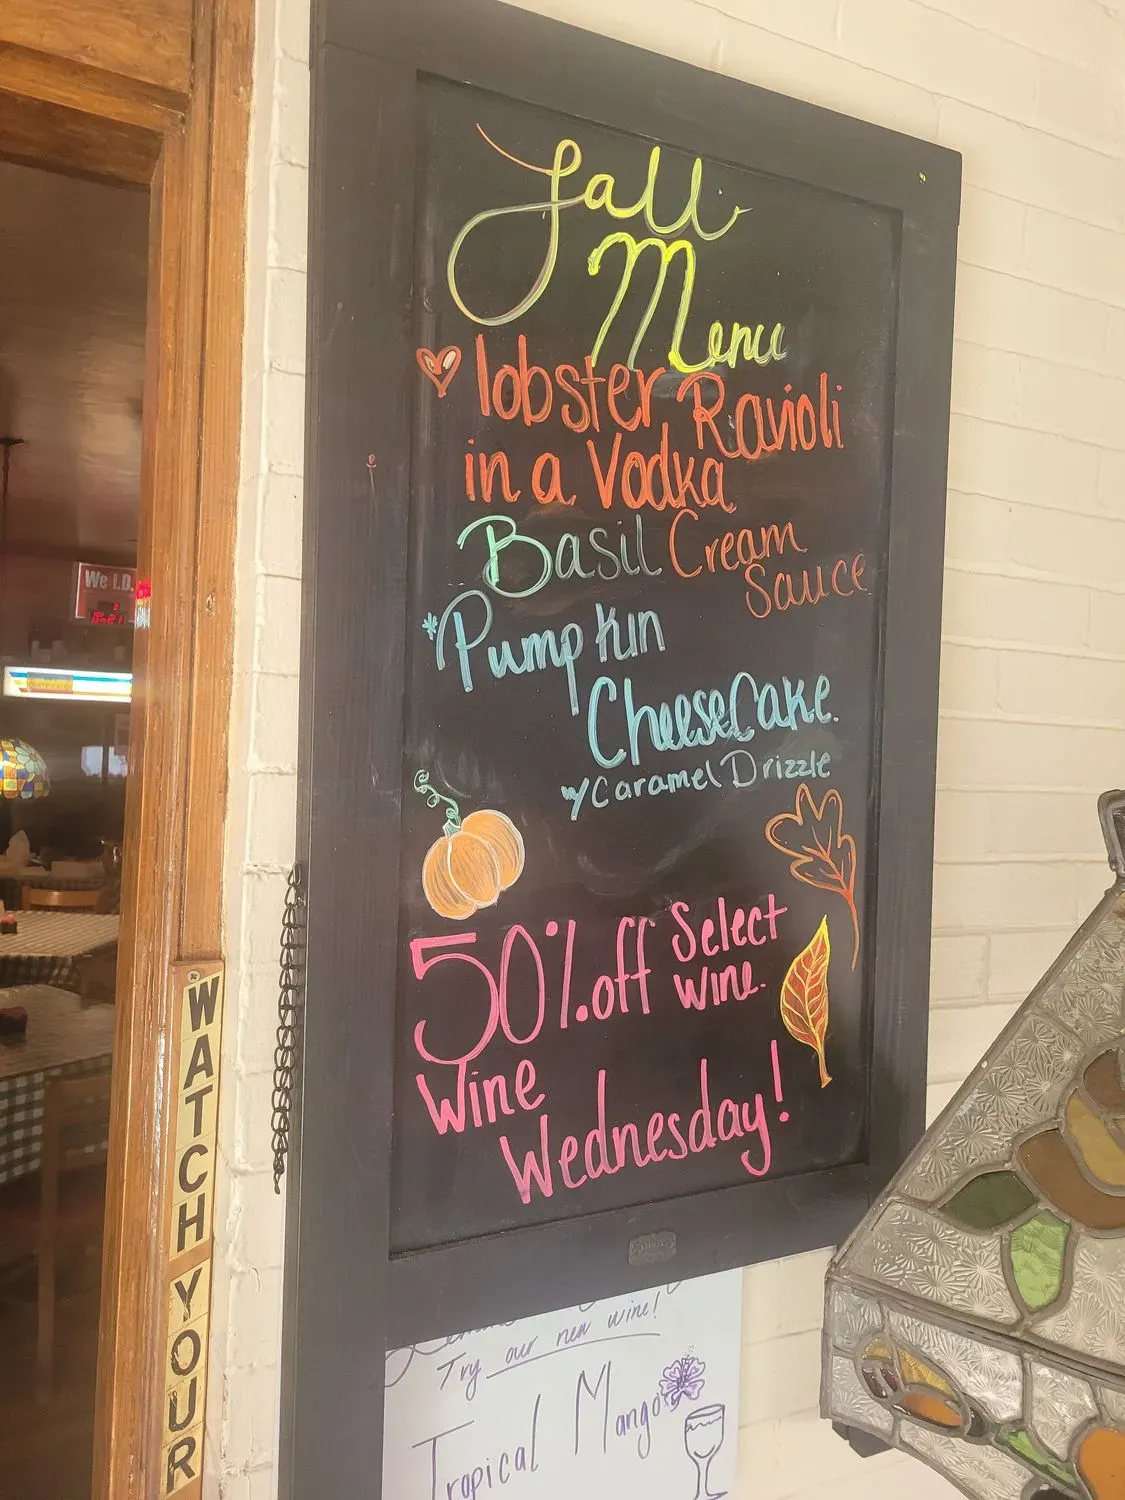 Fall
Menu
lobster Ravioli
in a Vodka
Basil Cream
Sauce
*Pumpkin
CheeseCake.
w/Caramel Drizzle
50%.off Select
wine.
Wine
Wednesday!
Try our new wine!
Tropical Mango
WATCH YOUR
We I.D.